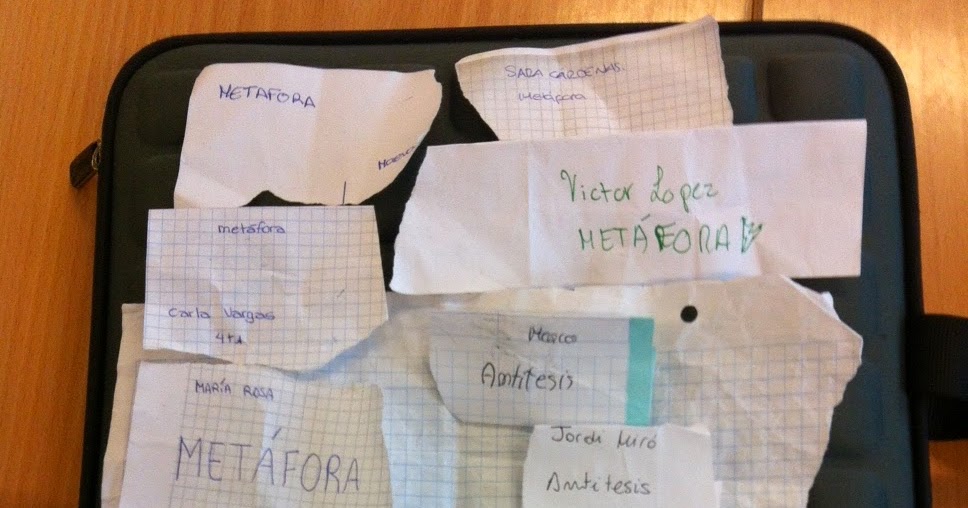 METAFORA
SARA CÁRDENAS.
Metáfora
Victor Lopez
METÁFORA
metáfora
Carla Vargas
Marco
Antítesis
MARÍA ROSA
METÁFORA
Jordi Miró
Antítesis